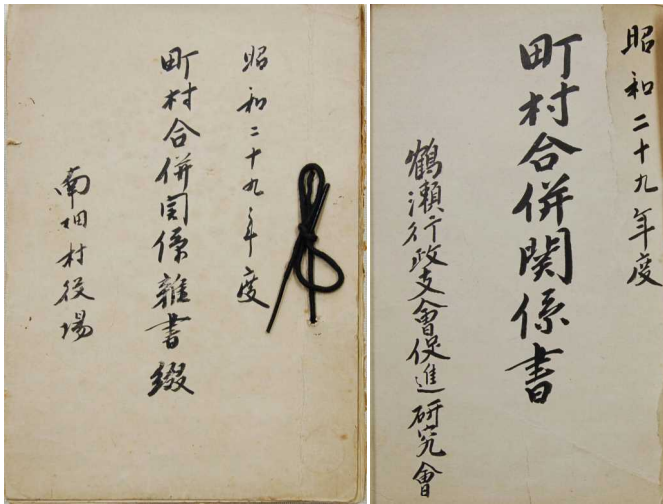 昭和二十九年度
町村合併関係雑書綴
南畑村役場
昭和二十九年度
町村合併関係書
鶴瀬行政支會促進研究會